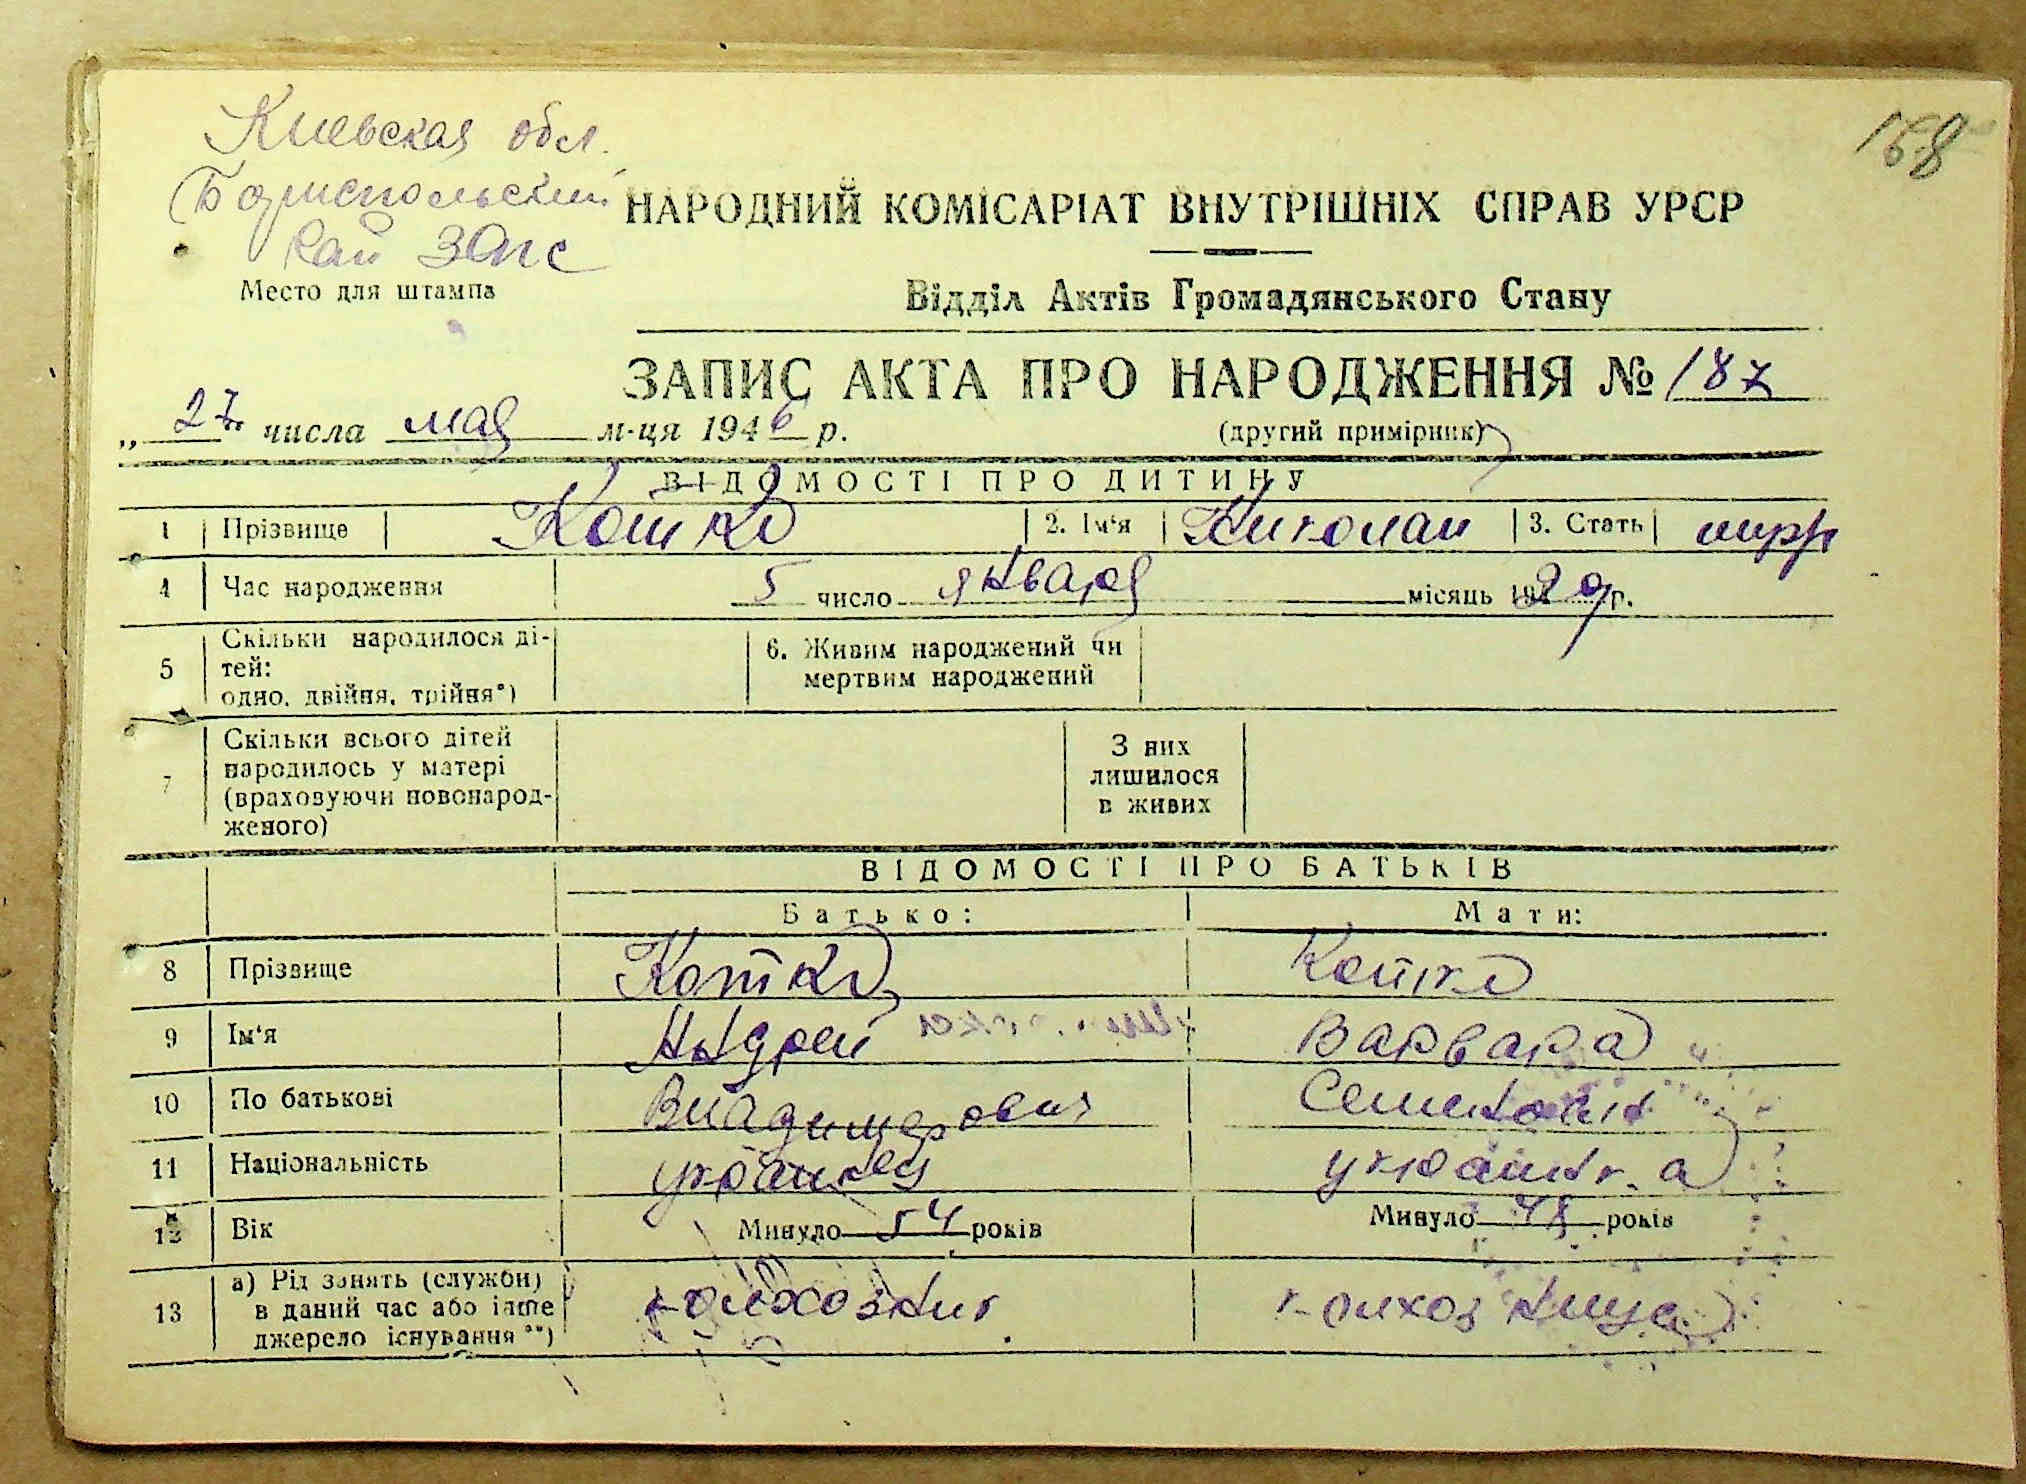 168
Киевская обл.
Бориспольский
Рай ЗАГС
Место для штампа
НАРОДНИЙ КОМІСАРІАТ ВНУТРІШНІХ СПРАВ УРСР
Відділ Актів Громадянського Стану
ЗАПИС АКТА ПРО НАРОДЖЕННЯ № 187
„ 27 " числа мая м-ця 1946 р.
(другий примірник)
ВІДОМОСТІ ПРО ДИТИНУ
1 Прізвище Котко 2. Ім'я Николай 3. Стать
4 Час народження 5 число января місяць 29 р.
5 Скільки народилося ді-
тей:
одно, двійня, трійня*)
6. Живим народжений чи
мертвим народжений
7 Скільки всього дітей
народилось у матері
(враховуючи новонарод-
женого)
З них
лишилося
в живих
ВІДОМОСТІ ПРО БАТЬКІВ
Батько: Мати:
8 Прізвище Котко Котко
9 Ім'я Андрей Варвара
10 По батькові Владимирович Семеновна
11 Національність украинец украинка
12 Вік Минуло 54 років Минуло 48 років
13 а) Рід занять (служби)
в даний час або інше
джерело існування **)
колхозник колхозница